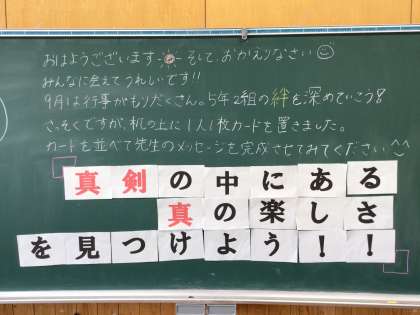 おはようございます そして おかえりなさい
みんなに会えてうれしいです!!
9月は行事がもりだくさん。5年2組の絆を深めていこう!
さっそくですが、机の上に1人1枚カードを置きました。
カードを並べて先生のメッセージを完成させてみてください^^
真剣の中にある
真の楽しさ
を見つけよう!!